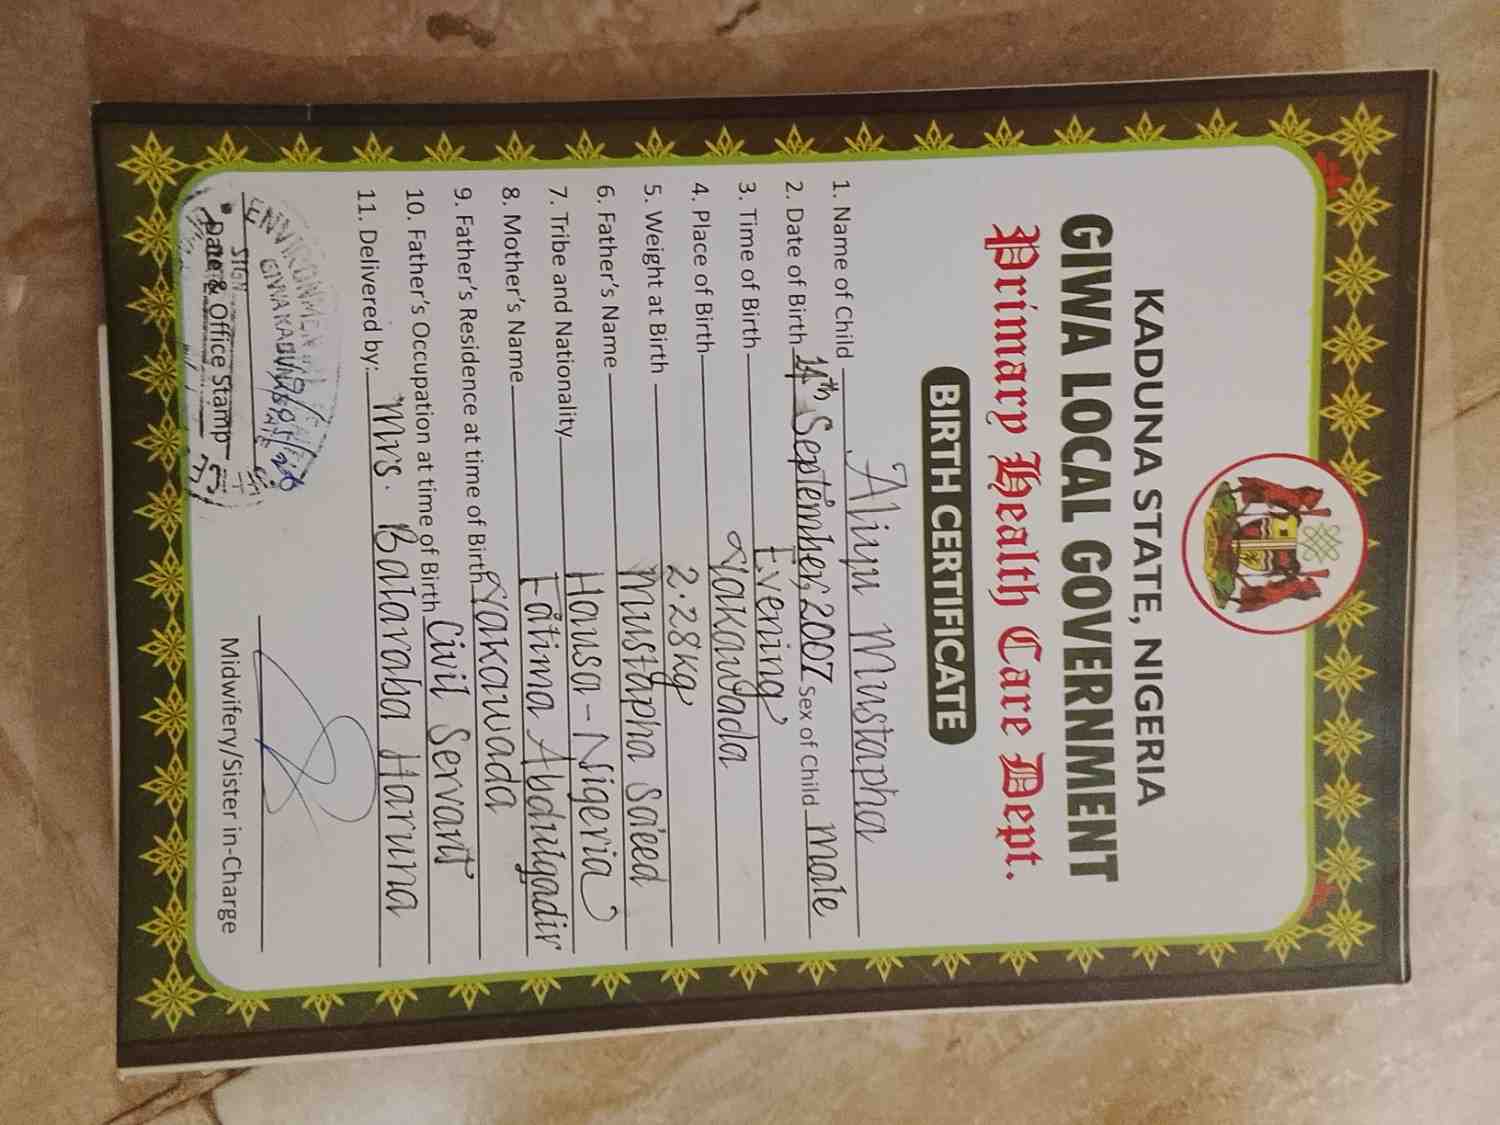 KADUNA STATE, NIGERIA
GIWA LOCAL GOVERNMENT
Primary Health Care Dept.
BIRTH CERTIFICATE
1. Name of Child Aliyu Mustapha
2. Date of Birth 14th September, 2007 sex of Child Male
3. Time of Birth Evening
4. Place of Birth Yakawada
5. Weight at Birth 2.28kg
6. Father's Name Mustapha Sa'eed
7. Tribe and Nationality Hausa - Nigeria
8. Mother's Name Fatima Abdulqadir
9. Father's Residence at time of Birth Yakawada
10. Father's Occupation at time of Birth Civil Servant
11. Delivered by: Mrs. Balaraba Haruna
ENVIRONMENTAL
GIWA KADUNA STATE
SIGN
Date & Office Stamp
Midwifery/Sister in-Charge